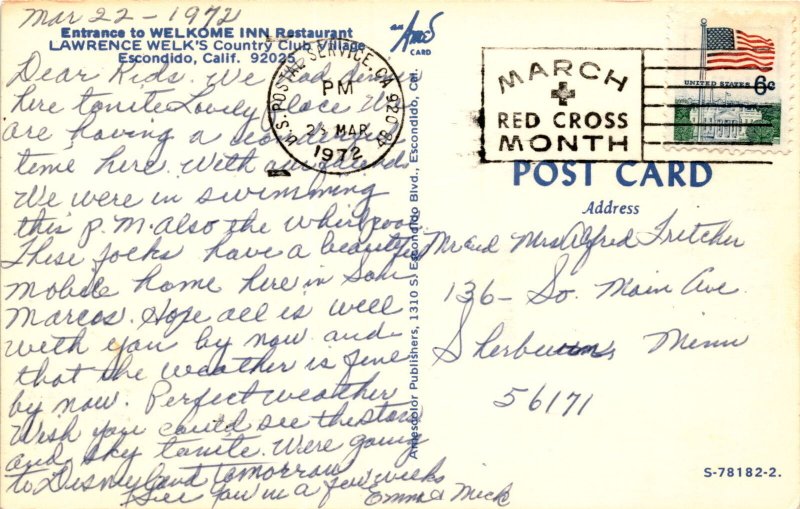 Mar 22 - 1972
Entrance to WELKOME INN Restaurant
LAWRENCE WELK'S Country Club Village
Escondido, Calif. 92025
Dear Kids. We had dinner
here tonite Lovely place We
are having a wonderful
time here. With our friends
We were in swimming
this p.m. also the whirlpool
These folks have a beautiful
mobile home here in San
Marcos. Hope all is well
with you by now and
that the weather is fine
by now. Perfect weather
Wish you could see the stars
and sky tonite. Were going
to Disneyland tomorrow
See you in a few weeks
Emma & Mick
Amescolor Publishers, 1310 S. Escondido Blvd., Escondido, Cal.
CARD
U.S. POSTAL SERVICE, CA 920
PM
MAR
1972
MARCH
RED CROSS
MONTH
UNITED STATES 6c
POST CARD
Address
Mr and Mrs Alfred Fritcher
136 - So. Main Ave
Sherburn, Minn
56171
S-78182-2.